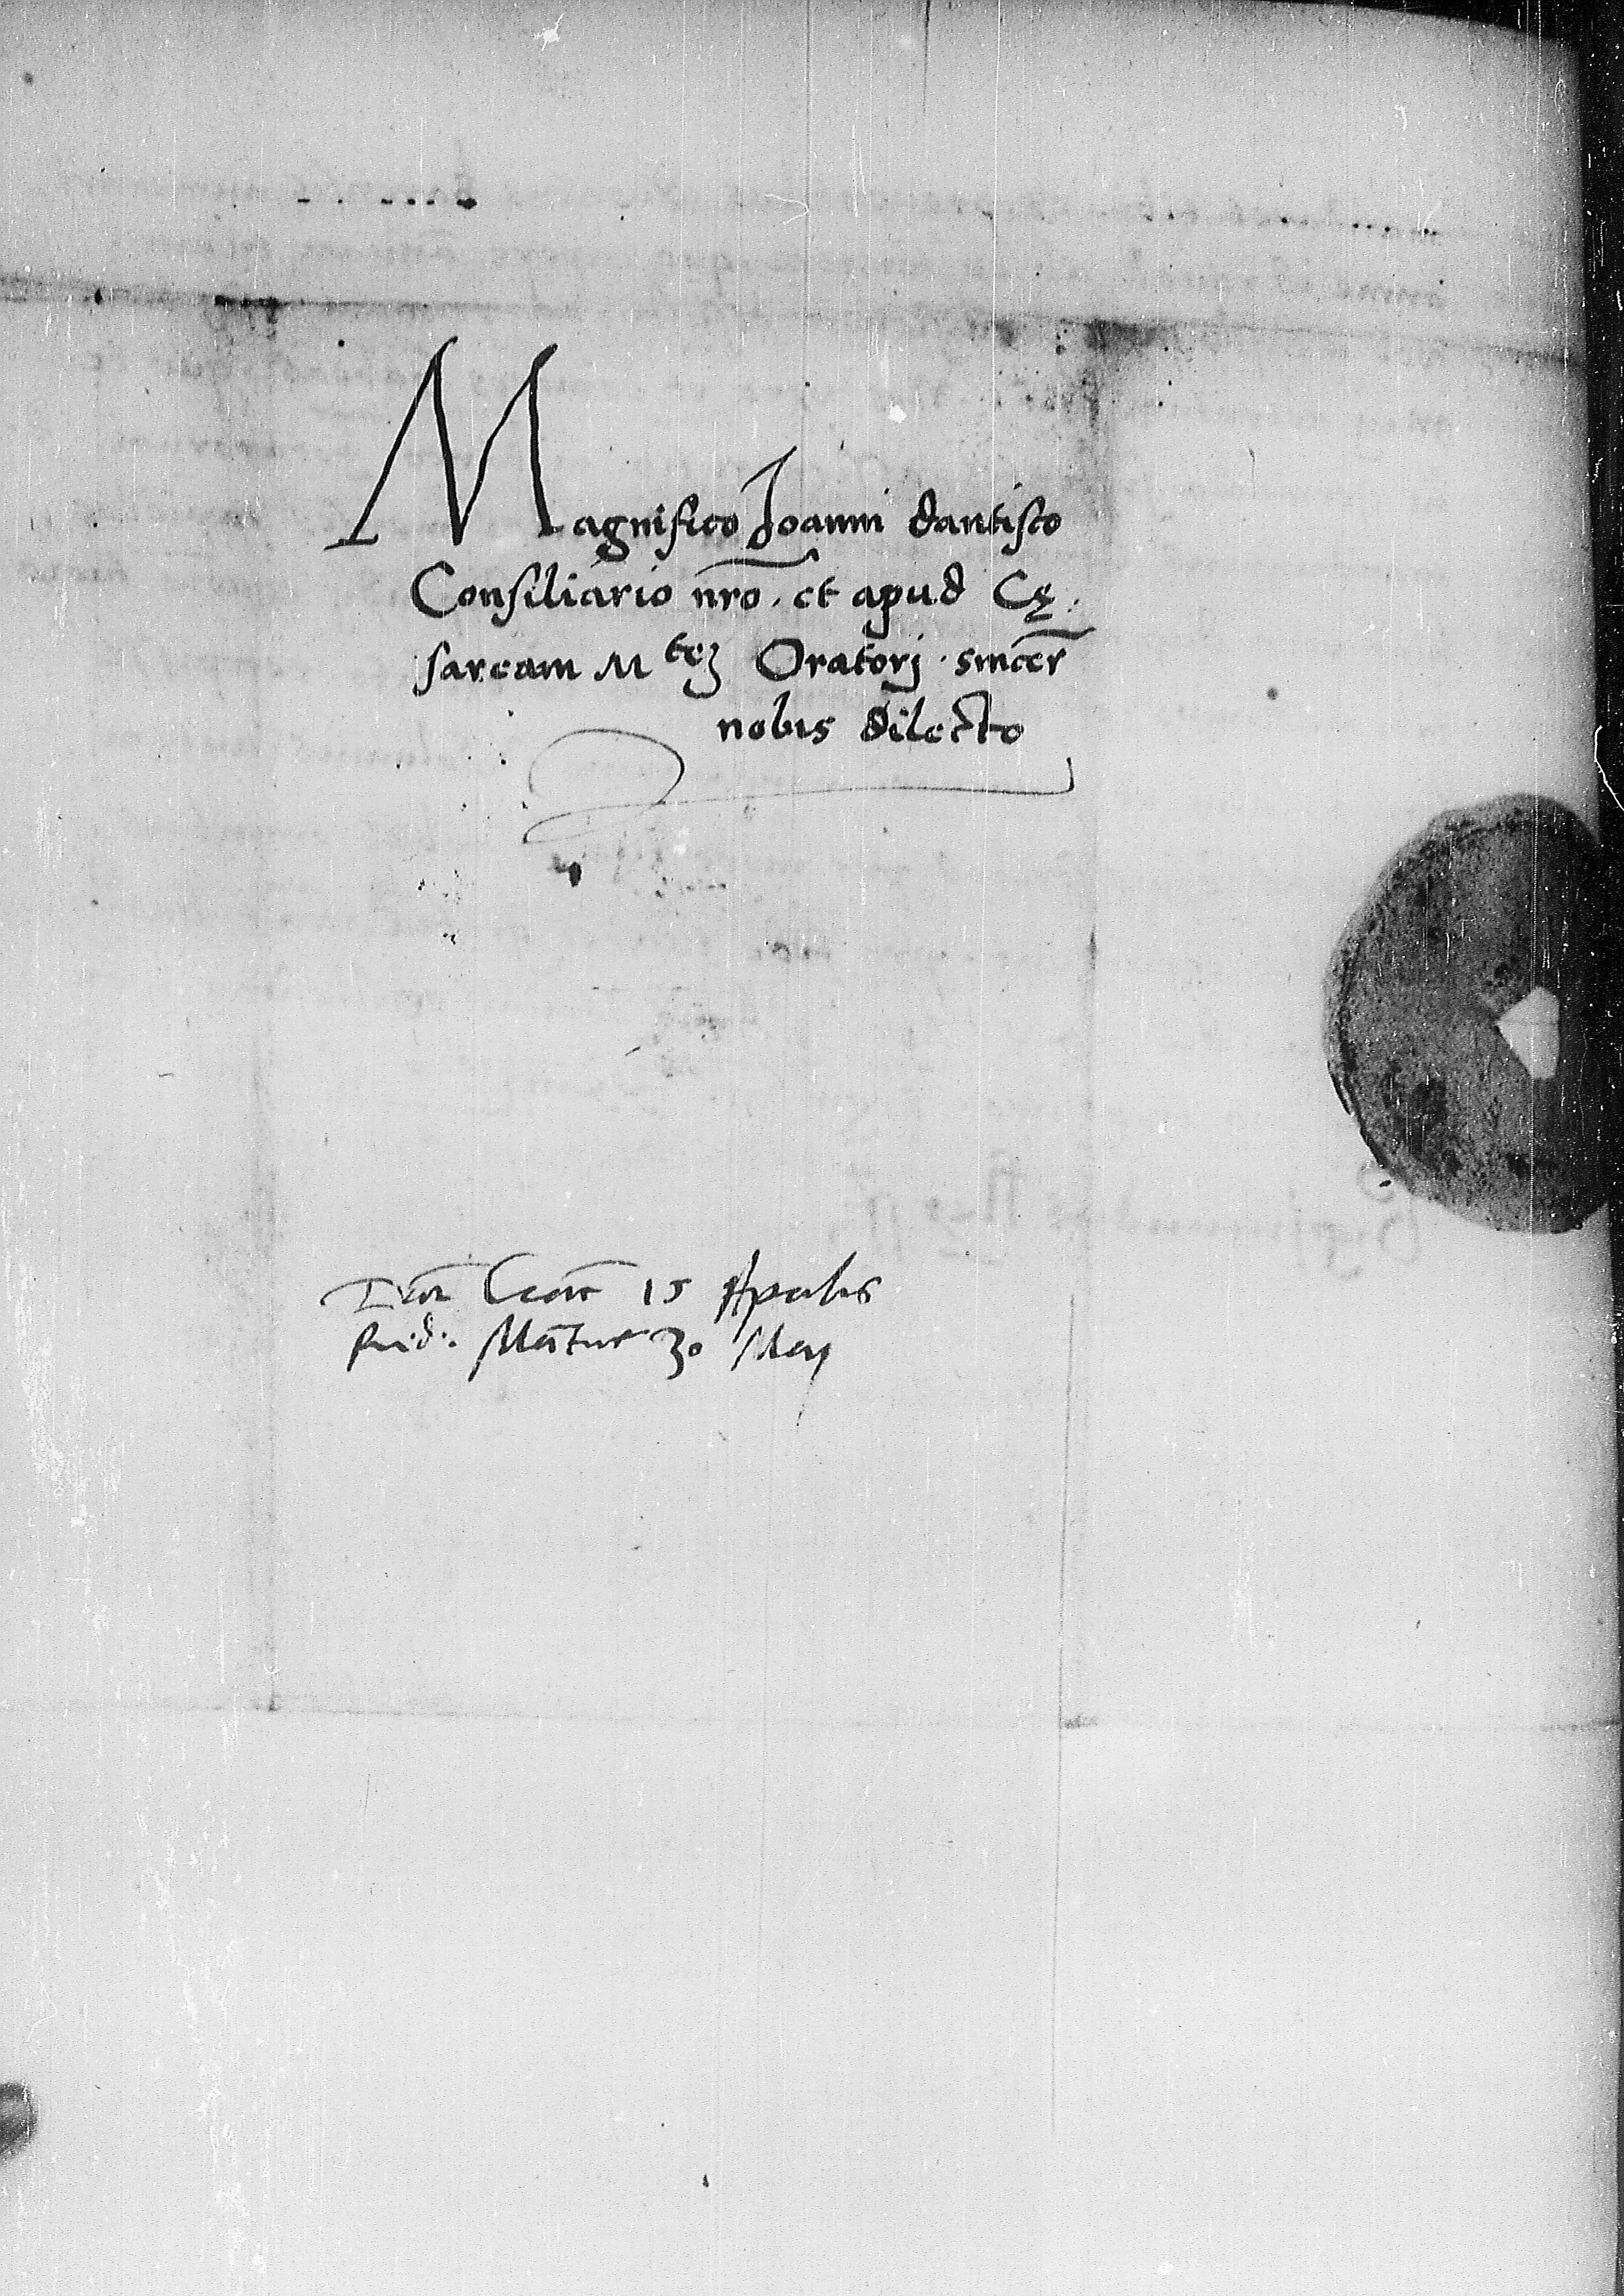 Magnifico Joanni dantisco
Consiliario nrō. et apud Cę:
saream Mteʒ Oratorj sincer̄
nobis dilecto
15 Aprilis
Mantue 30 Maij